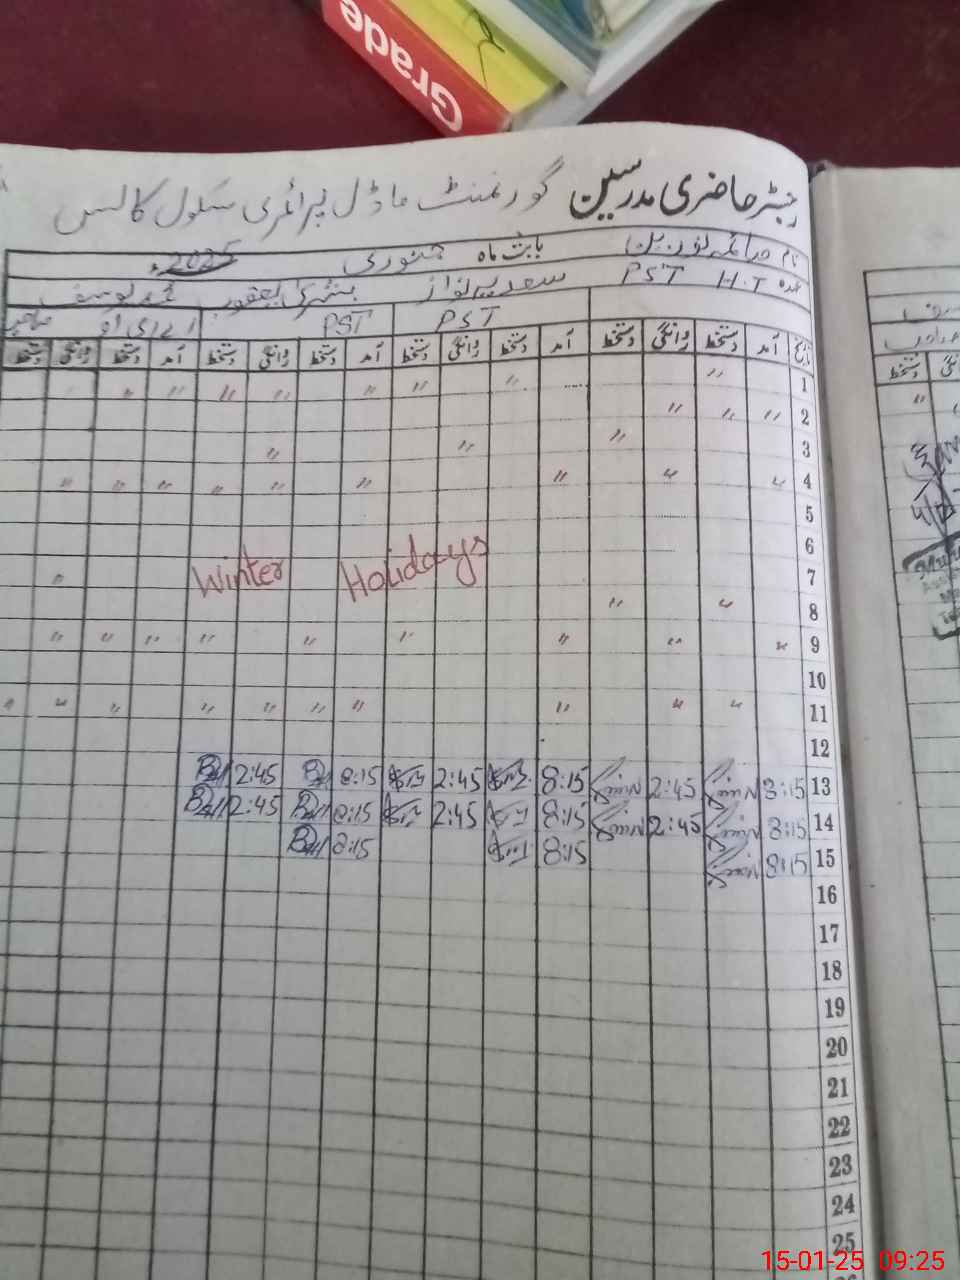 Grade
رجسٹر حاضری مدرسین گورنمنٹ ماڈل پرائمری سکول کالس
نام بابت ماہ جنوری 2025ء
عہدہ H.T PST سعدیہ نواز بشریٰ یعقوب محمد یوسف
PST PST اے ای او صاحب
تاریخ آمد دستخط روانگی دستخط آمد دستخط روانگی دستخط آمد دستخط روانگی دستخط آمد دستخط روانگی دستخط
1 〃 〃 〃 〃 〃 〃 〃
2 〃 〃 〃
3 〃 〃 〃
4 〃 〃 〃 〃 〃 〃 〃 〃 〃
5
6
Winter Holidays
7 〃
8 〃 〃
9 〃 〃 〃 〃 〃 〃 〃 〃 〃
10
11 〃 〃 〃 〃 〃 〃 〃 〃 〃 〃
12
13 8:15 2:45 8:15 2:45 8:15 2:45
14 8:15 2:45 8:15 2:45 8:15 2:45
15 8:15 8:15 8:15
16
17
18
19
20
21
22
23
24
25
دستخط
15-01-25 09:25